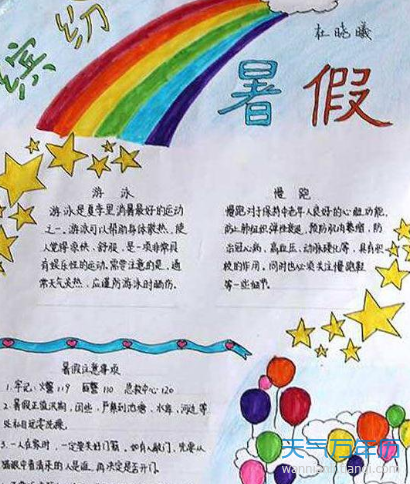 缤纷
杜晓曦
暑假
游泳
游泳是夏季里消暑最好的运动
之一。游泳可以帮助身体散热，使
人觉得凉快、舒服，是一项非常具
有娱乐性的运动。需要注意的是，通
常天气炎热，应谨防游泳时晒伤。
慢跑
慢跑对于保持中老年人良好的心脏功能，
防止肺组织弹性衰退，预防肌肉萎缩，防
治冠心病、高血压、动脉硬化等，具有积
极的作用。同时也必须关注慢跑鞋
等一些细节。
暑假注意事项
1.牢记：火警119 百警110 急救中心120
2.暑假正值汛期，因此，严禁到池塘、水库、河边等
处私自玩耍洗澡。
3.一人在家时，一定要关好门窗，如有人敲门，先要从
猫眼中看清来的人是谁，再决定是否开门。
天气万年历
wannianli.tianqi.com